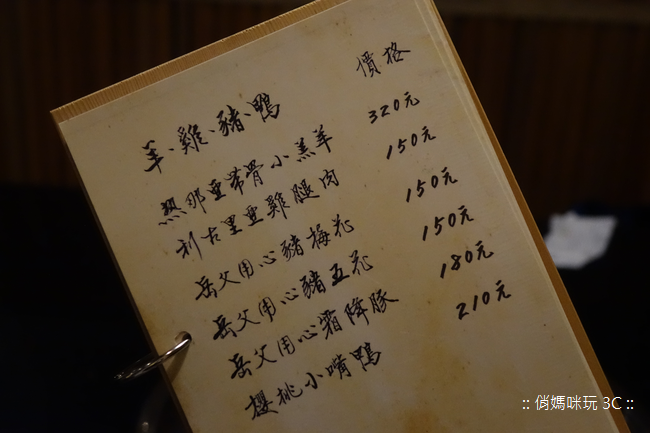 羊、雞、豬、鴨 價格
熱那亞帶骨小羔羊 320元
利古里亞雞腿肉 150元
岳父用心豬梅花 150元
岳父用心豬五花 150元
岳父用心霜降豚 180元
櫻桃小嘴鴨 210元
:: 俏媽咪玩 3C ::